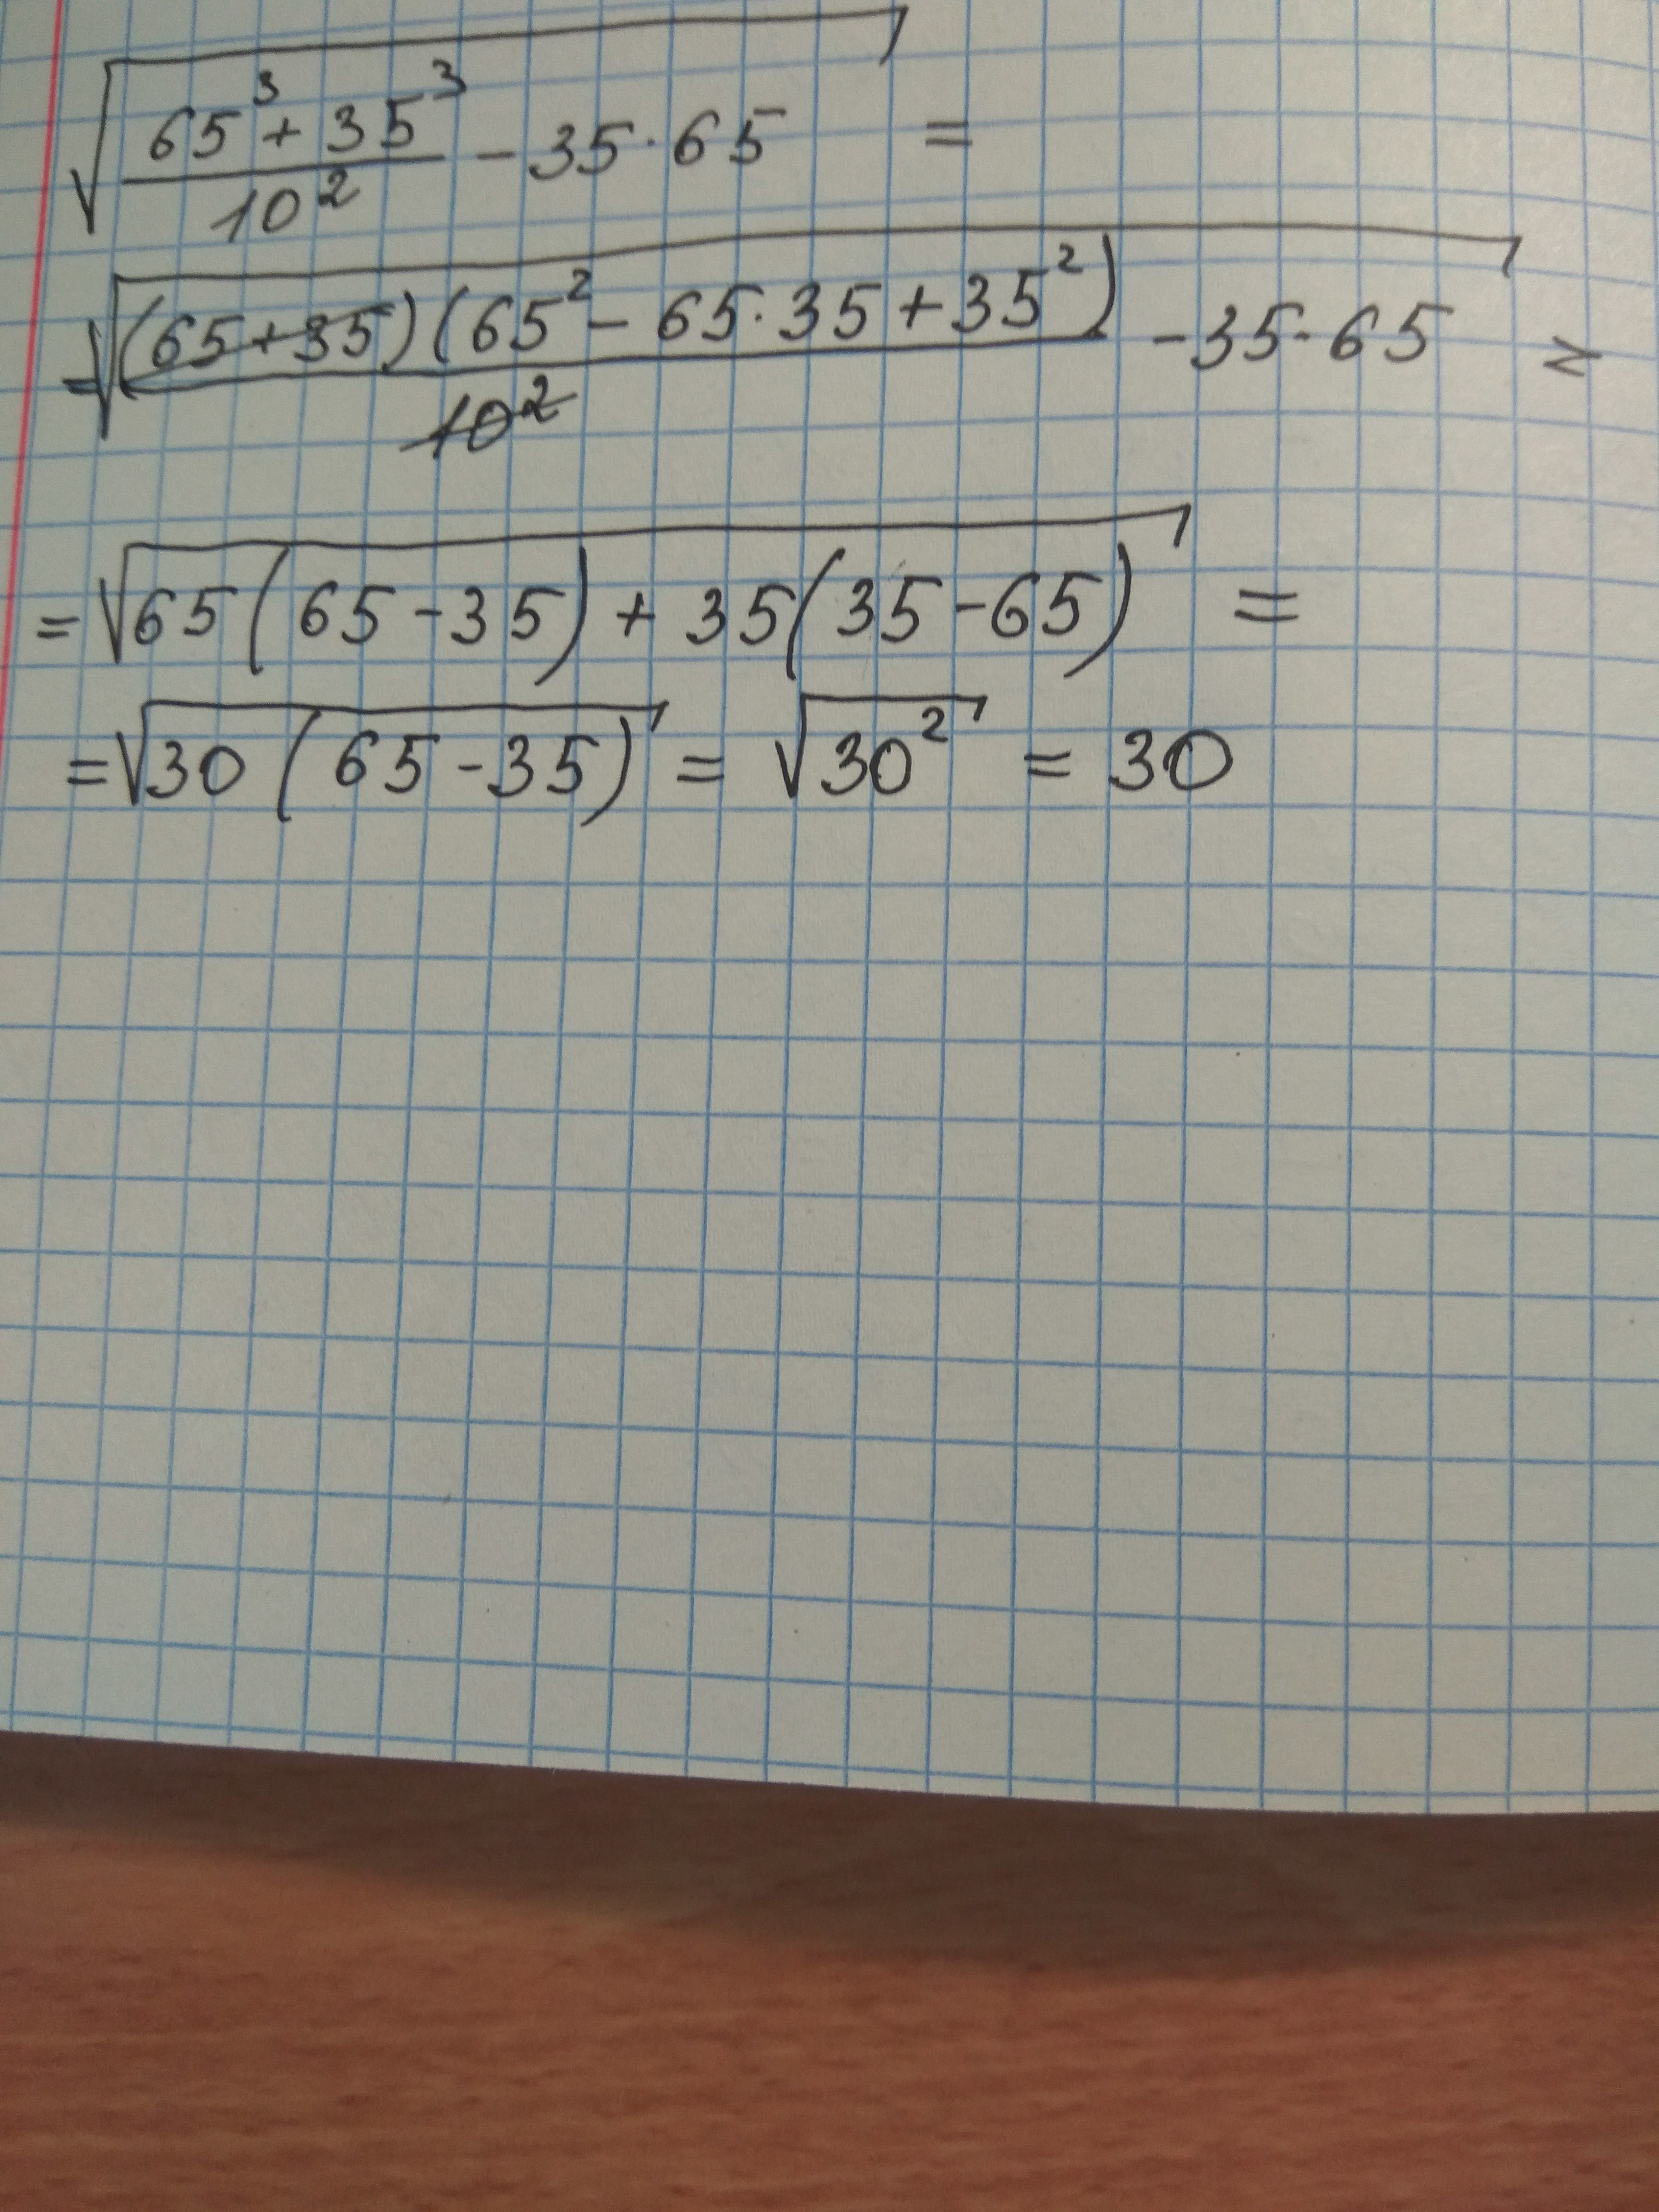 √((65³ + 35³)/10² - 35·65) =
= √((65+35)(65² - 65·35 + 35²)/10² - 35·65) =
= √(65(65-35) + 35(35-65)) =
= √(30(65-35)) = √(30²) = 30